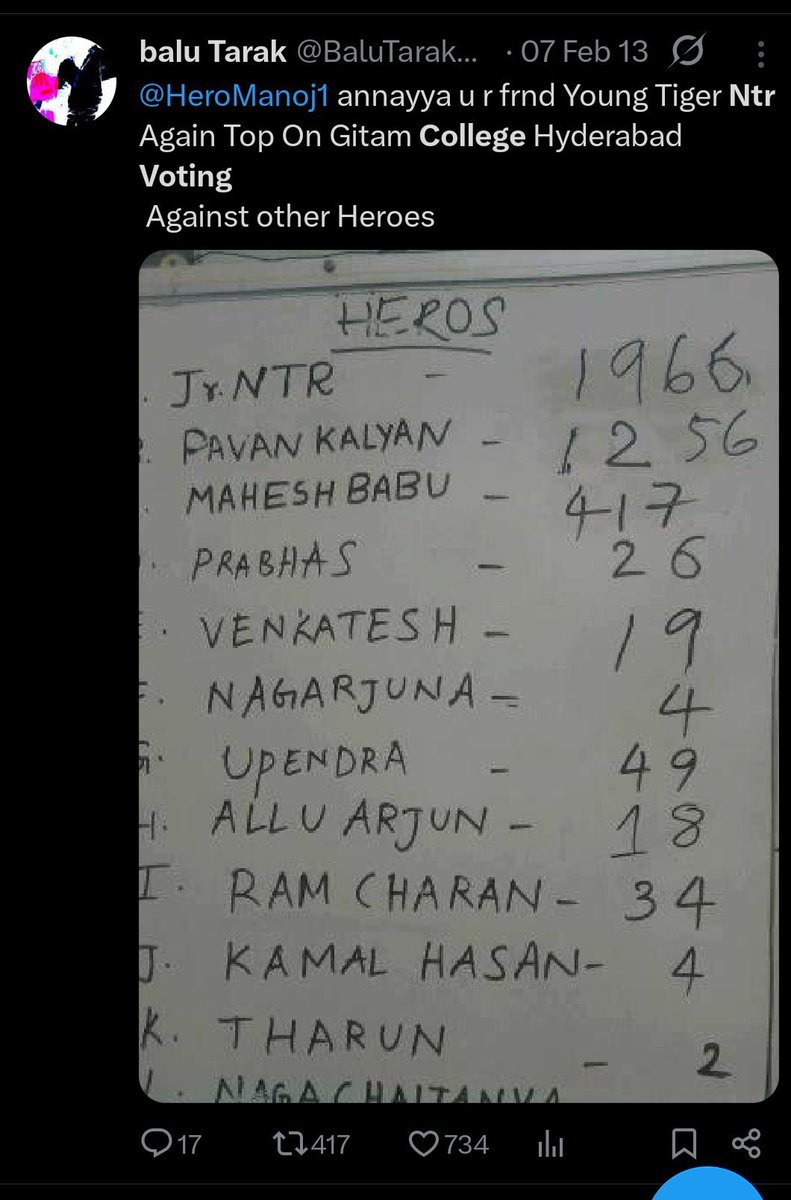 balu Tarak @BaluTarak... · 07 Feb 13
@HeroManoj1 annayya u r frnd Young Tiger Ntr
Again Top On Gitam College Hyderabad
Voting
Against other Heroes
HEROS
. Jr. NTR - 1966
. PAVAN KALYAN - 1256
. MAHESH BABU - 417
. PRABHAS - 26
. VENKATESH - 19
F. NAGARJUNA - 4
G. UPENDRA - 49
H. ALLU ARJUN - 18
I. RAM CHARAN - 34
J. KAMAL HASAN - 4
K. THARUN - 2
L. NAGA CHAITANYA
17 417 734